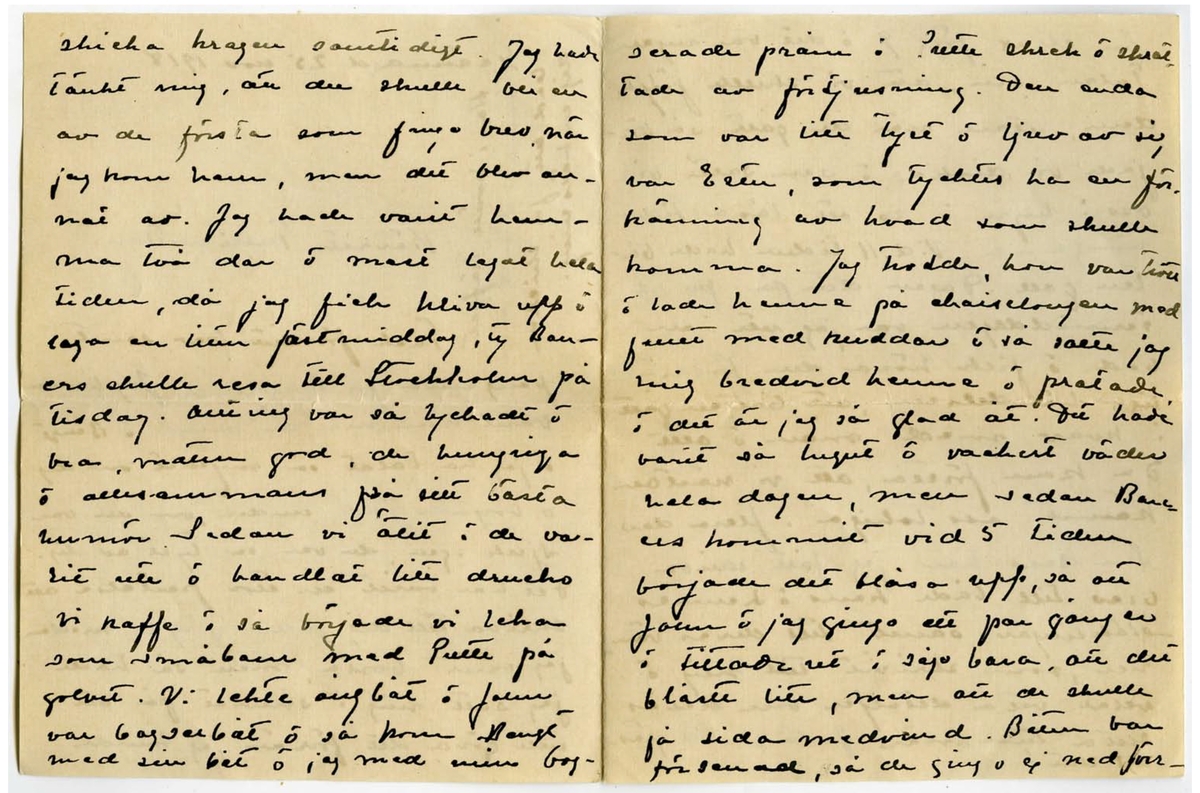 skicka kragen samtidigt. Jag hade
tänkt mig, att du skulle bli en
av de första som fingo brev, när
jag kom hem, men det blev an-
nat av. Jag hade varit hem-
ma två dar ö mest legat hela
tiden, då jag fick kliva upp ö
laga en liten fästmiddag, ty Ban-
ers skulle resa till Stockholm på
tisdag. Allting var så lyckadt ö
bra, maten god, de hungriga
ö allesammans på sitt bästa
humör. Sedan vi ätit ö de va-
rit ute ö handlat litt drucko
vi kaffe ö så började vi leka
som småbarn med Putte på
golvet. Vi lekte ångbåt ö John
var bogserbåt ö så kom Bengt
med sin båt ö jag med min bog-
serade pråm ö Putte skrek ö skrat-
tade av förtjusning. Den enda
som var litt tyst ö tjuv av sig
var Ester, som tycktes ha en för-
känning av hvad som skulle
komma. Jag trodde, hon var trött
ö lade henne på chaiselongen med
fullt med kuddar ö så satte jag
mig bredvid henne ö pratade
ö det är jag så glad åt. Det hade
varit så lugnt ö vackert väder
hela dagen, men sedan Ban-
ers kommit vid 5 tiden
började det blåsa upp, så att
John ö jag gingo ett par gånger
ö tittade ut ö sågo bara, att det
blåste litt, men att de skulle
få sida medvind. Båten var
försenad, så de gingo ej ned förr-